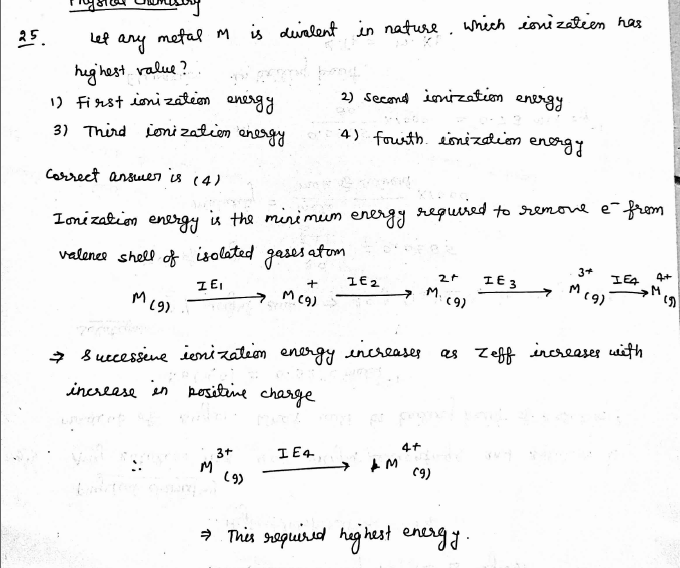 Physical Chemistry
25. Let any metal M is divalent in nature. Which ionization has
highest value?
1) First ionization energy 2) Second ionization energy
3) Third ionization energy 4) fourth ionization energy
Correct answer is (4)
Ionization energy is the minimum energy required to remove e⁻ from
valence shell of isolated gases atom
M(g) —IE1→ M⁺(g) —IE2→ M²⁺(g) —IE3→ M³⁺(g) —IE4→ M⁴⁺(g)
⇒ Successive ionization energy increases as Zeff increases with
increase in positive charge
∴ M³⁺(g) —IE4→ M⁴⁺(g)
⇒ This required highest energy.